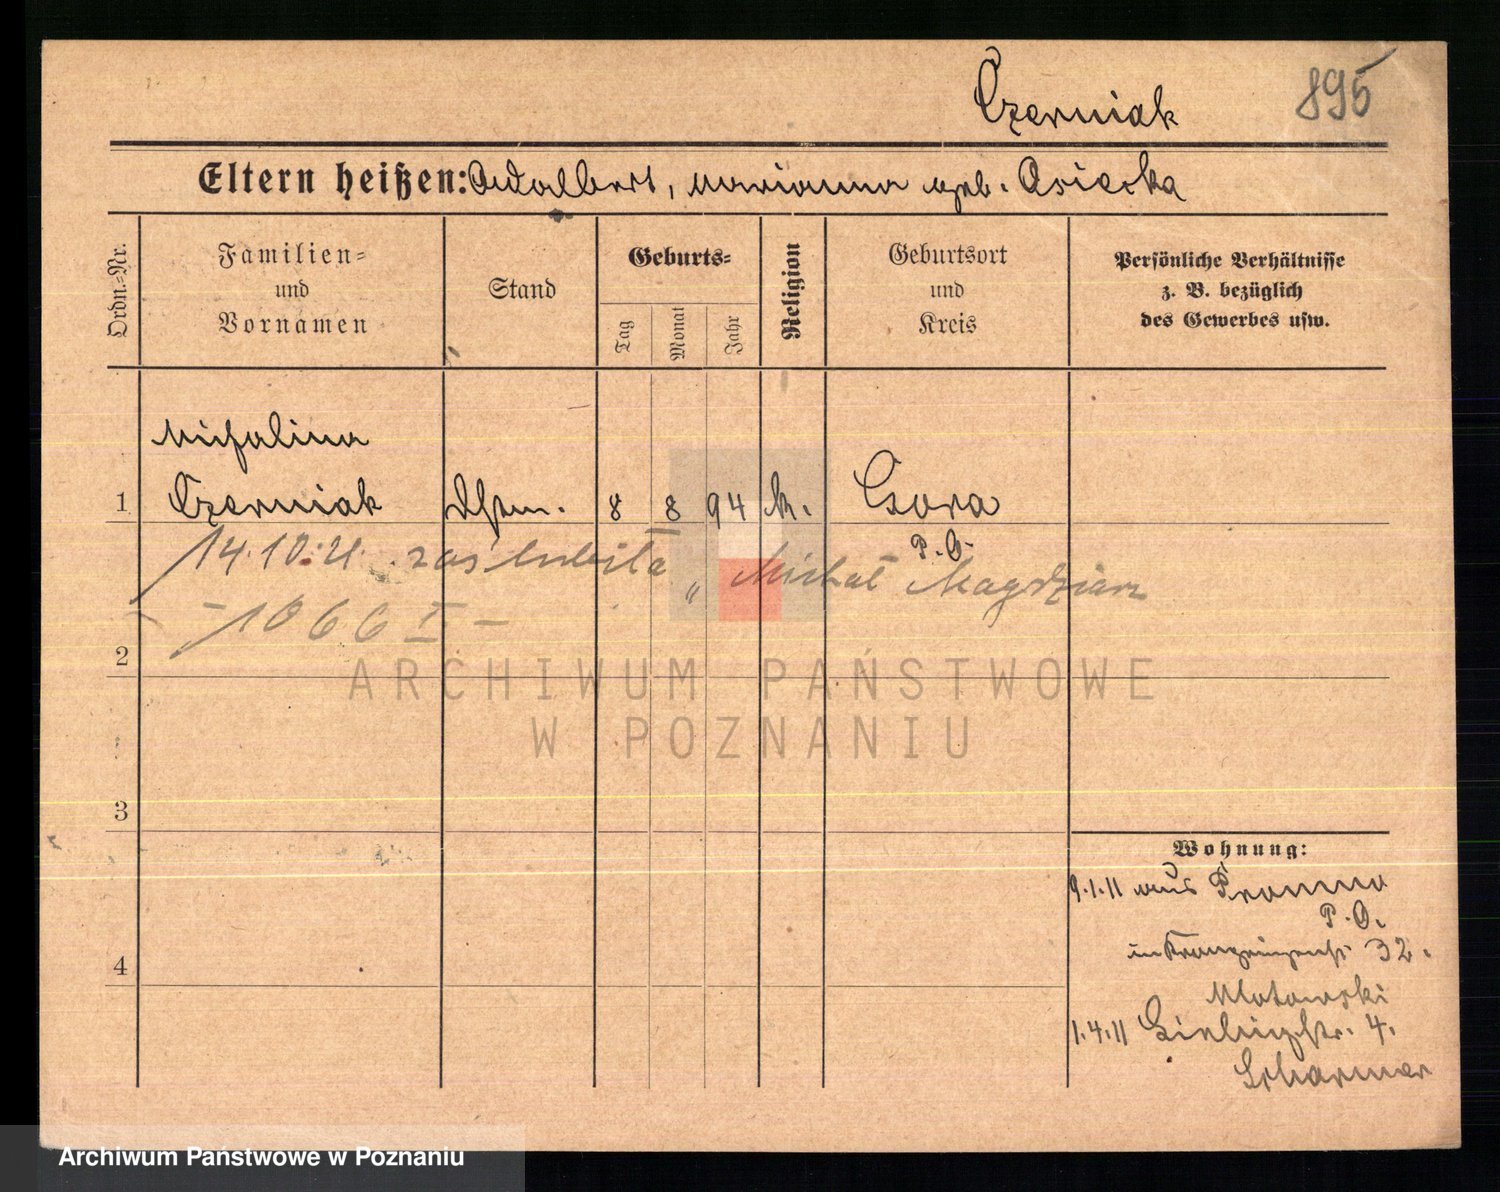 Czerniak
895
Eltern heißen: Adalbert, Marianna geb. Osiecka
Ordn.=Nr.
Familien=
und
Vornamen
Stand
Geburts=
Tag
Monat
Jahr
Religion
Geburtsort
und
Kreis
Persönliche Verhältnisse
z. B. bezüglich
des Gewerbes usw.
Michalina
1 Czerniak Dstm. 8 8 94 k. Gora
P. O.
14.10.21. zaślubiła " Michał Magdziarz
- 1066 I -
2
ARCHIWUM PAŃSTWOWE
W POZNANIU
3
Wohnung:
9.1.11 aus Promno
P. O.
in 32.
Mlotowski
4
1.4.11 4.
Archiwum Państwowe w Poznaniu